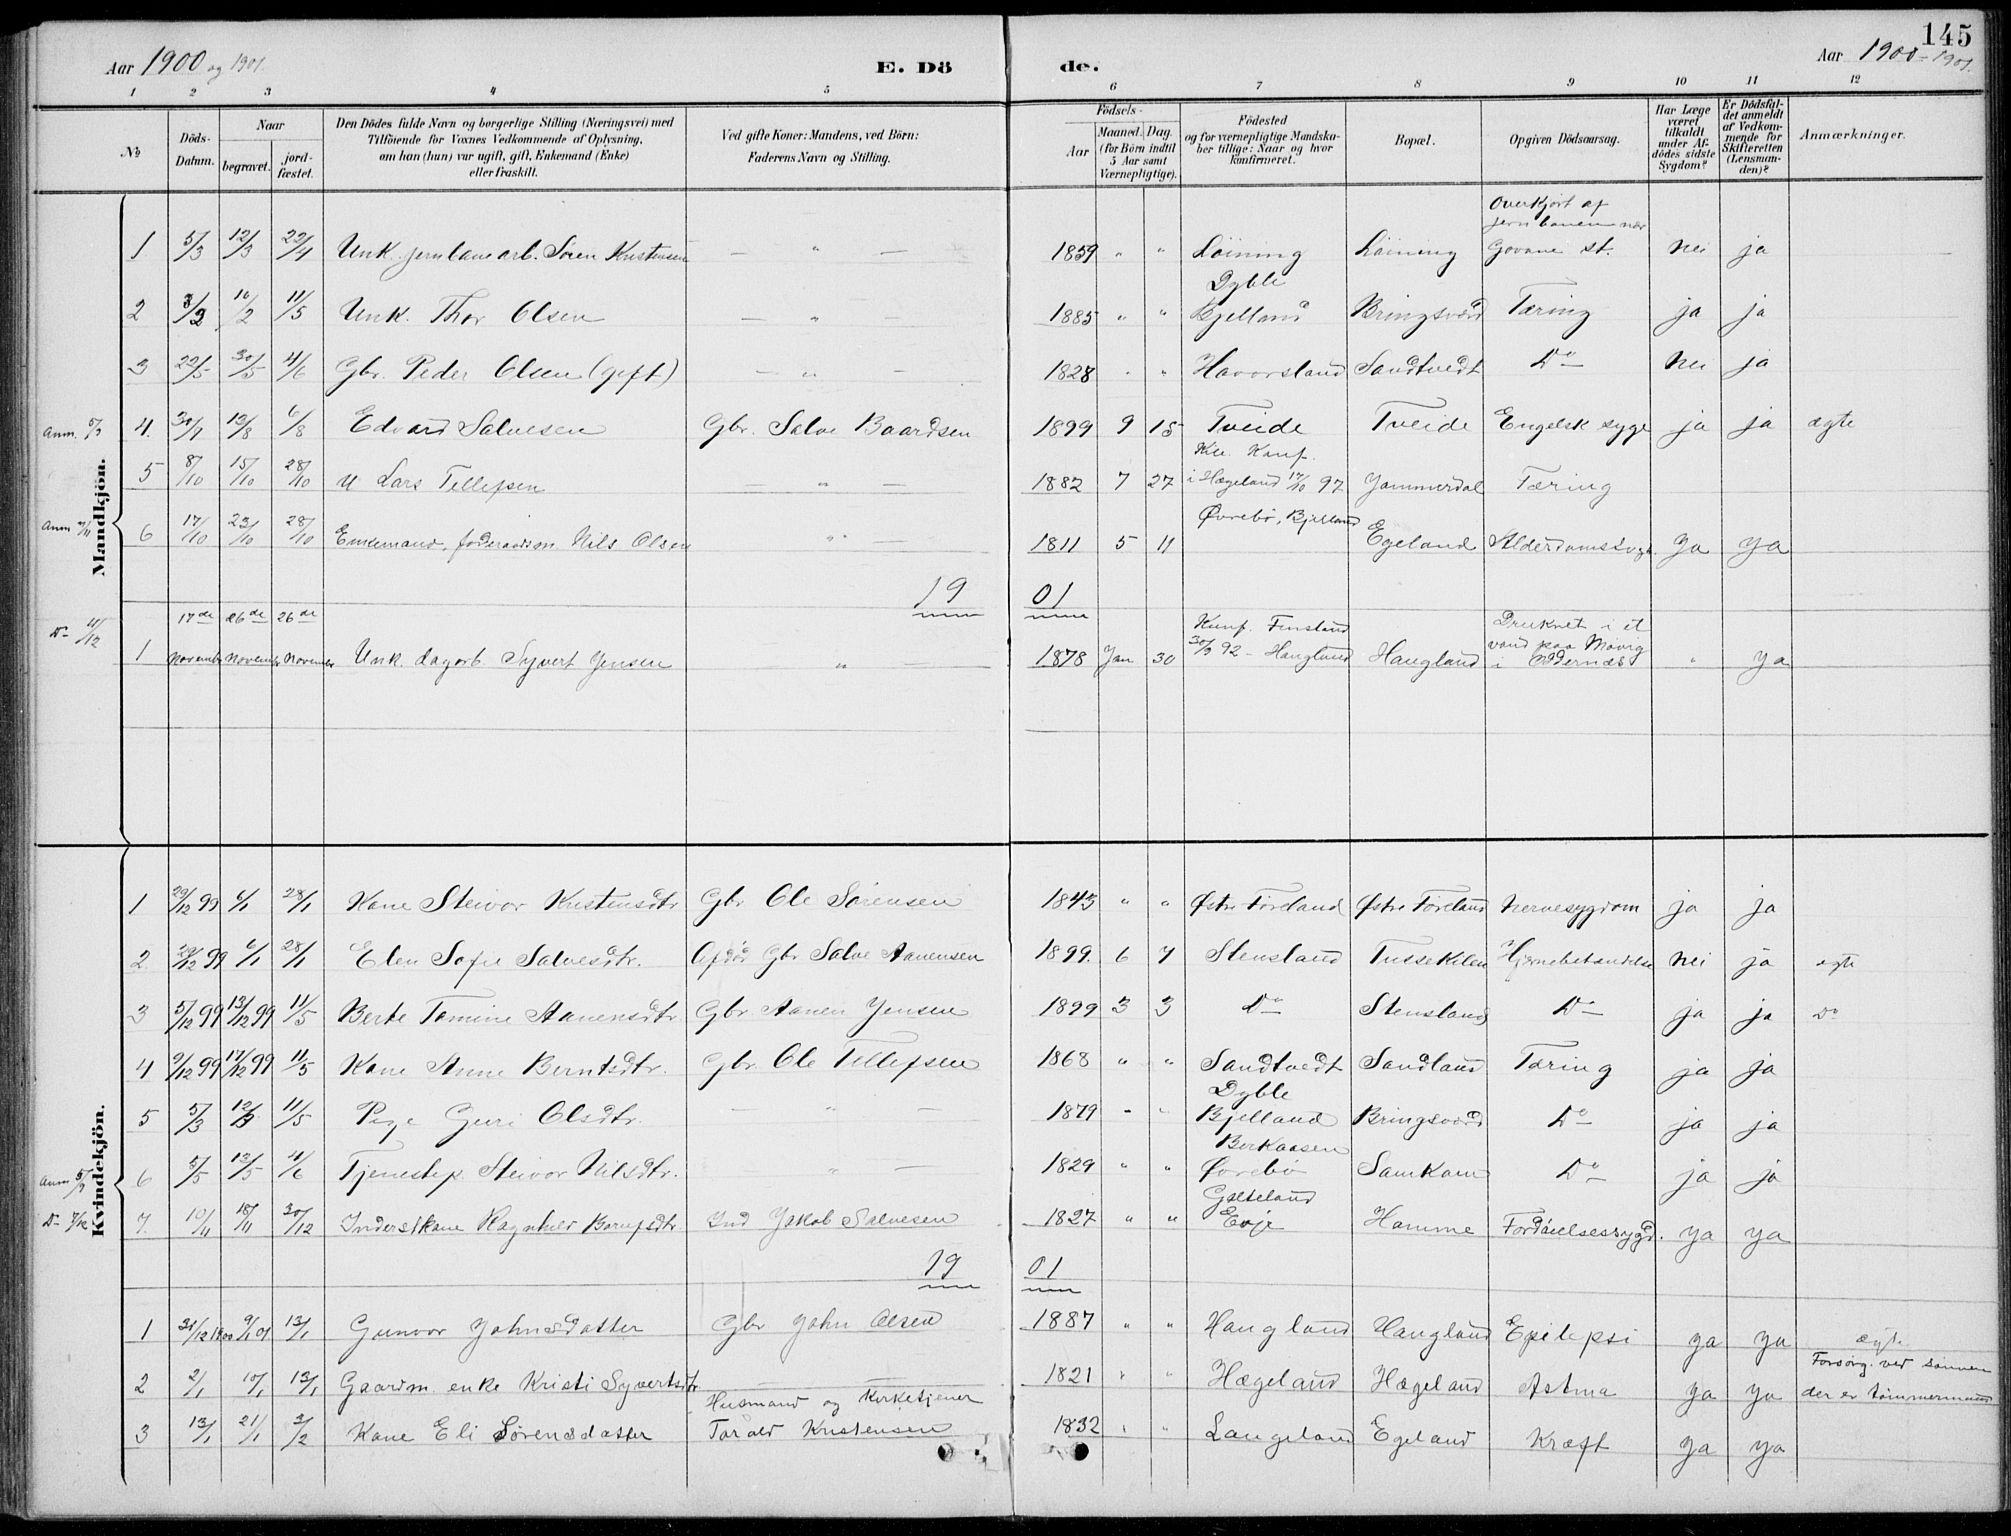 145
Aar 1900 og 1901.
E. Dö de.
Aar 1900 - 1901.
1 2 3 4 5 6 7 8 9 10 11 12
No
Döds-Datum.
Naar
begravet.
jord-fæstet.
Den Dödes fulde Navn og borgerlige Stilling (Næringsvei) med
Tilföiende for Voxnes Vedkommende af Oplysning,
om han (hun) var ugift, gift, Enkemand (Enke)
eller fraskilt.
Ved gifte Koner: Mandens, ved Börn:
Faderens Navn og Stilling.
Födsels-
Aar
Maaned. Dag.
(for Börn indtil
5 Aar samt
Værnepligtige).
Födested
og for værnepligtige Mandska-
ber tillige: Naar og hvor
konfirmeret.
Bopæl.
Opgiven Dödsaarsag.
Har Læge
været
tilkaldt
under Af-
dödes sidste
Sygdom?
Er Dödsfal-
det anmeldt
af Vedkom-
mende for
Skifteretten
(Lensman-
den)?
Anmærkninger.
Mandkjön.
Overkjört af
jernbanen nær
1 5/3 12/3 22/4 Unk. jernbanearb. Sören Kristensen — " — 1859 " " Löining Löining Govane st. nei ja
Dyble
2 3/2 10/2 11/5 Unk. Thor Olsen — " — 1885 " " Bjelland Bringsværd Tæring ja ja
3 22/5 30/5 4/6 Gbr. Peder Olsen (gift) — " — 1828 " " Havorsland Sandtvedt Do nei ja
4. 30/7 13/8 6/8 Edvard Salvesen Gbr. Salve Baardsen 1899 9 15 Tveide Tveide Engelsk syge ja ja ægte
Anm.
Kle. Konf.
5 8/10 15/10 28/10 U Lars Tellefsen — " — 1882 7 27 i Hægeland 17/10 97 Jammerdal Tæring
Øvrebö, Bjelland
Anm 7/11 6 17/10 23/10 28/10 Enkemand, föderaadsm. Nils Olsen " — 1811 5 11 Egeland Alderdomssvagh. Ja Ja
19 01
Do 11/12
17de 26de 26de
Konf. Finsland
Druknet i et
vand paa Mosvig
1 November November November Unk. dagarb. Syvert Jensen " 1878 Jan 30 30/9 92 - Haugland Haugland i Oddernæs " Ja
Kvindekjön.
1 29/12 99 6/1 28/1 Kone Steivor Kristensdtr Gbr Ole Sörensen 1843 " " Østre Föreland Østre Föreland Nervesygdom ja ja
2. 29/12 99 6/1 28/1 Elen Sofie Salvesdtr. Afdöd Gbr Salve Aanensen 1899. 6 7 Stensland Tussekilen Hjernebetændelse nei ja ægte
3 5/12 99 13/12 99 11/5 Berte Tomine Aanensdtr Gbr Aanen Jensen 1899 3 3 Do Stensland Do ja ja Do
4 9/12 99 17/12 99 11/5 Kone Anne Berntsdtr. Gbr. Ole Tellefsen 1868 " " Sandtvedt Sandland Tæring ja ja
Dyble
5 5/3 12/3 11/5 Pige Guri Olsdtr. — " — 1879 " " Bjelland Bringsværd Do ja ja
Borkaasen
Anm 5/9 6 5/5 13/5 4/6 Tjenestep. Steivor Nilsdtr. — " — 1829 " " Øvrebö Samkom Do ja ja
Gseteland
Do 7/12 7. 10/11 18/11 30/12 Inderstkone Ragnhild Bornfsdtr Ind Jakob Salvesen 1827 " " Evje Homme Fordöielsessygd. Ja Ja
19 01
1 31/12 1900 9/1 01 13/1 Gunvor Johnsdatter Gbr John Olsen 1887 " " Haugland Haugland Epilepsi Ja Ja ægte
Forsörg. ved sönnen
2 2/1 10/1 13/1 Gaardm. enke Kristi Syvertsdtr — — 1821 " " Hægeland Hægeland Astma Ja Ja der er tömmermand
Husmand og Kirketjener
3 13/1 21/1 3/2 Kone Eli Sörensdatter Torald Kristensen 1832 " " Langeland Egeland Kræft Ja Ja